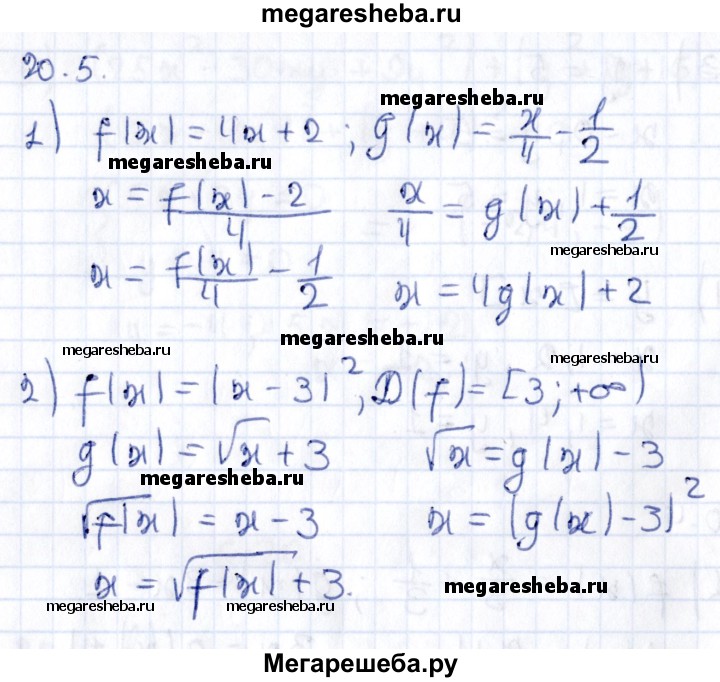 megaresheba.ru
20.5.
1) f(x) = 4x + 2 ; g(x) = x/4 - 1/2
megaresheba.ru
megaresheba.ru
x = (f(x) - 2)/4    x/4 = g(x) + 1/2
megaresheba.ru
x = f(x)/4 - 1/2    x = 4g(x) + 2
megaresheba.ru
megaresheba.ru
megaresheba.ru
2) f(x) = (x - 3)², D(f) = [3; +∞)
g(x) = √x + 3    √x = g(x) - 3
megaresheba.ru
√f(x) = x - 3    x = (g(x) - 3)²
x = √f(x) + 3.
megaresheba.ru
megaresheba.ru
megaresheba.ru
Мегарешеба.ру